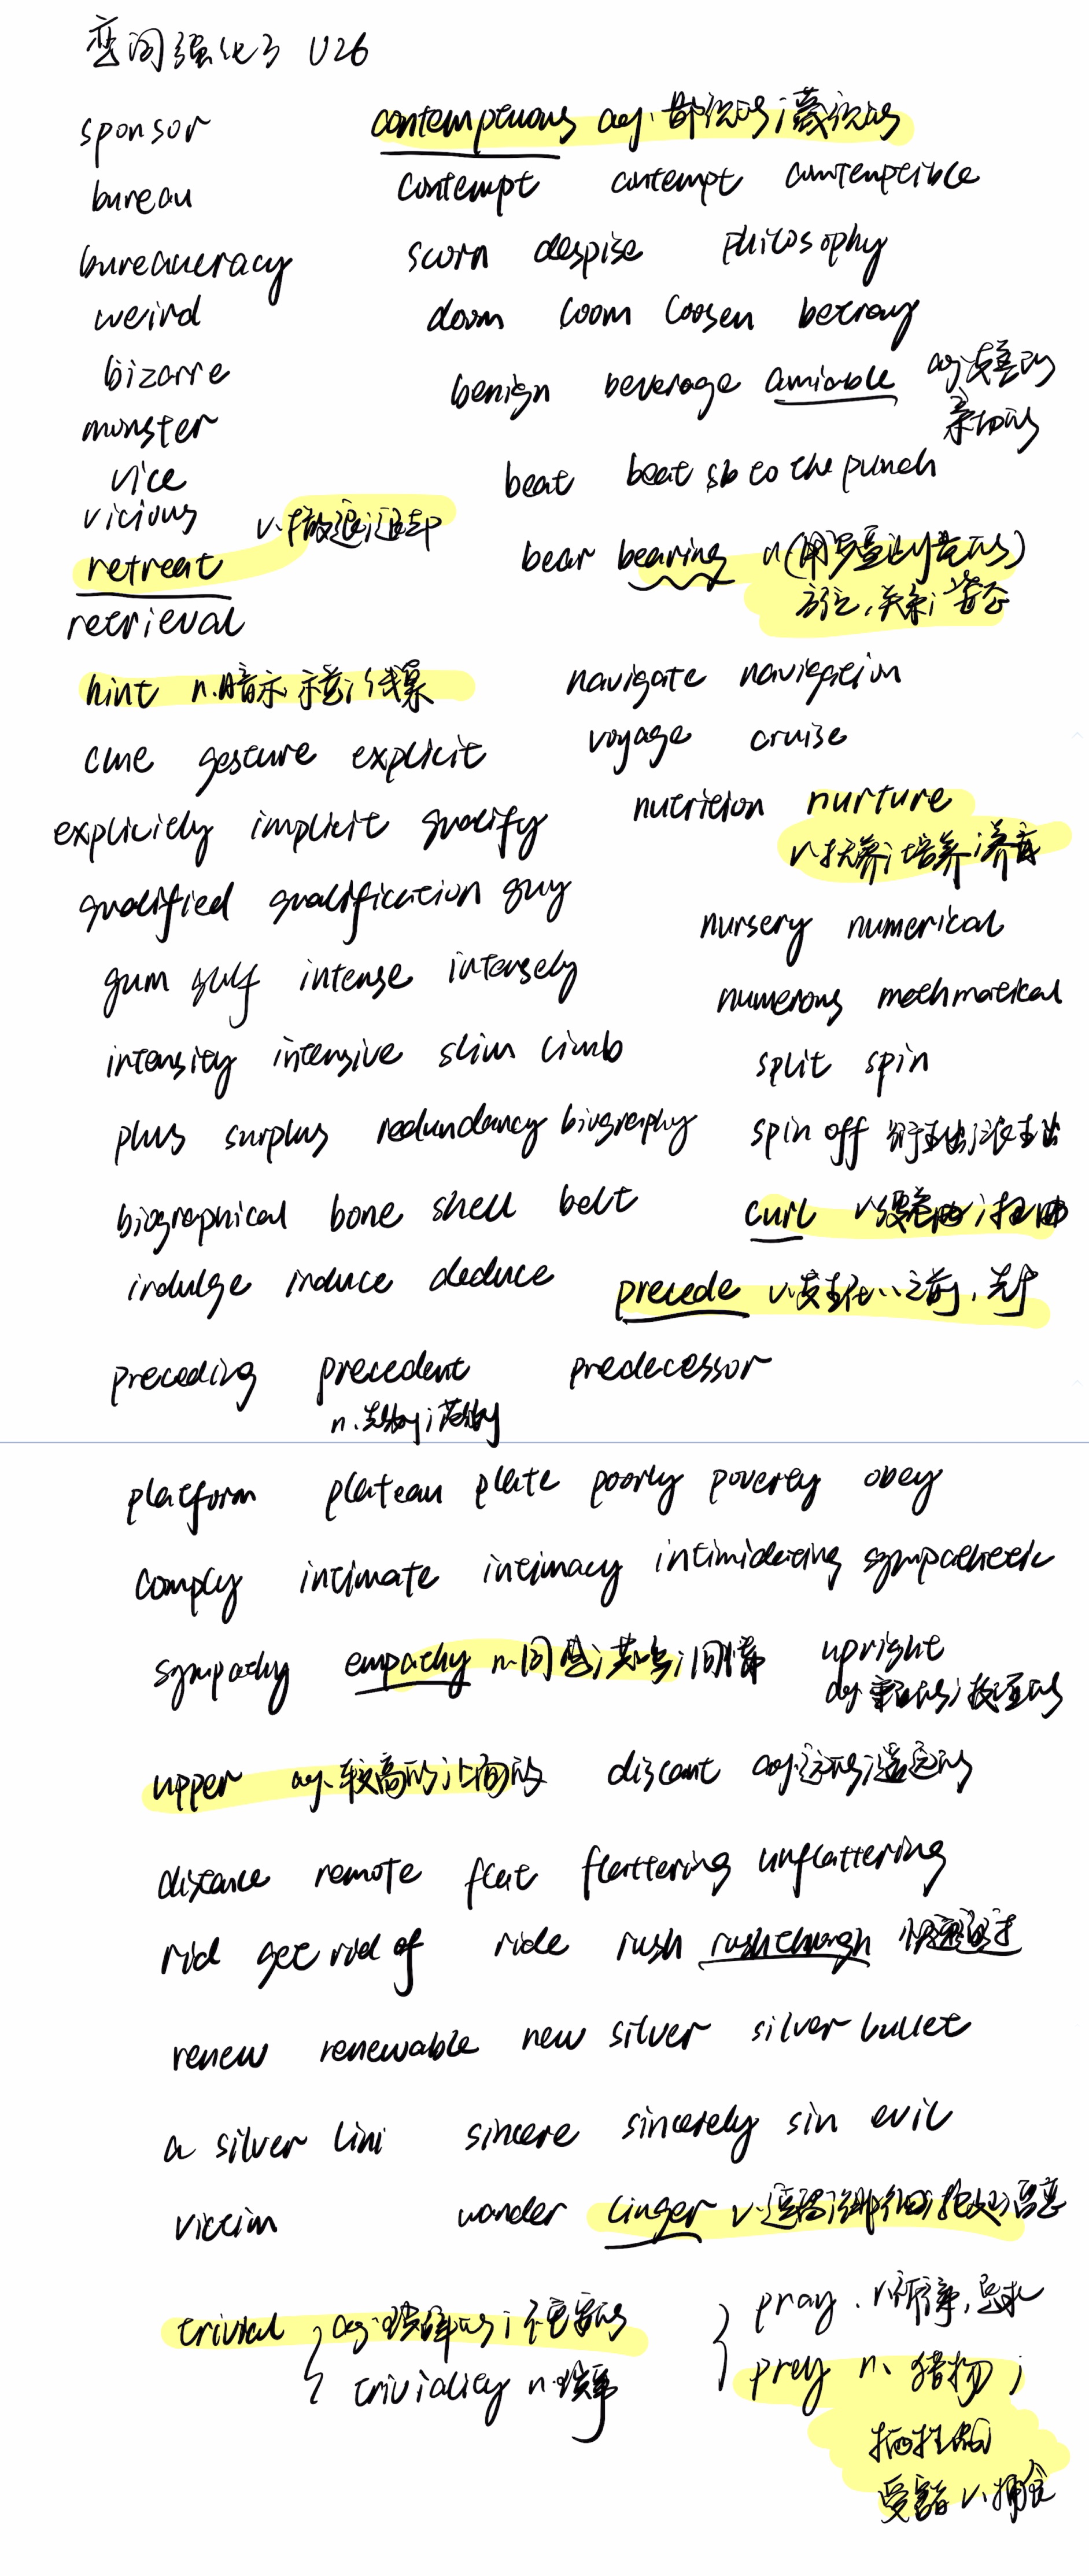 U26
sponsor
bureau
bureaucracy
weird
bizarre
monster
vice
vicious
retreat
retrieval
hint n.暗示;示意;线索
clue gesture explicit
explicitly implicit qualify
qualified qualification guy
gum gulf intense intensely
intensity intensive slim limb
plus surplus redundancy biography
biographical bone shell belt
indulge induce deduce
adj.鄙视的;蔑视的
contempt contempt contemptible
scorn despise philosophy
doom loom loosen betray
benign beverage amiable adj.友善的
亲切的
beat beat sb to the punch
bear bearing
方位,关系;姿态
navigate navigation
voyage cruise
nutrition nurture
v.抚养;培养;养育
nursery numerical
numerous mathmatical
split spin
spin off 衍生出;派生出
curl
precede v.发生在…之前,先于
preceding precedent predecessor
n.先例;范例
platform plateau plate poorly poverty obey
comply intimate intimacy intimidating sympathetic
sympathy empathy n.同感;共鸣;同情 upright
adj.垂直的;挺直的
upper adj.较高的;上面的 distant adj.远的;遥远的
distance remote flat flattering unflattering
rid get rid of ride rush rush through 快速通过
renew renewable new silver silver bullet
a silver lini sincere sincerely sin evil
victim wander linger
trivial adj.琐碎的;不重要的
triviality n.琐事
pray v.祈祷,恳求
prey n.猎物;
受害者 v.捕食